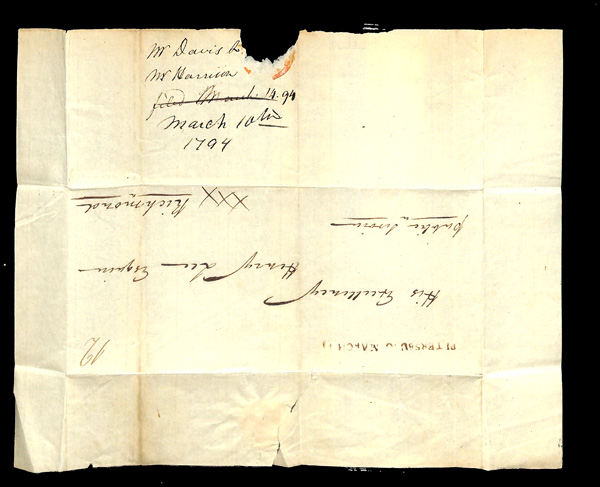 Mr Davis &
Mr Harrison
filed March. 14. 94
March 10th
1794
PETERSBU. G MARCH 11
12
His Excellency
Henry Lee Esquire
public service
XXX Richmond